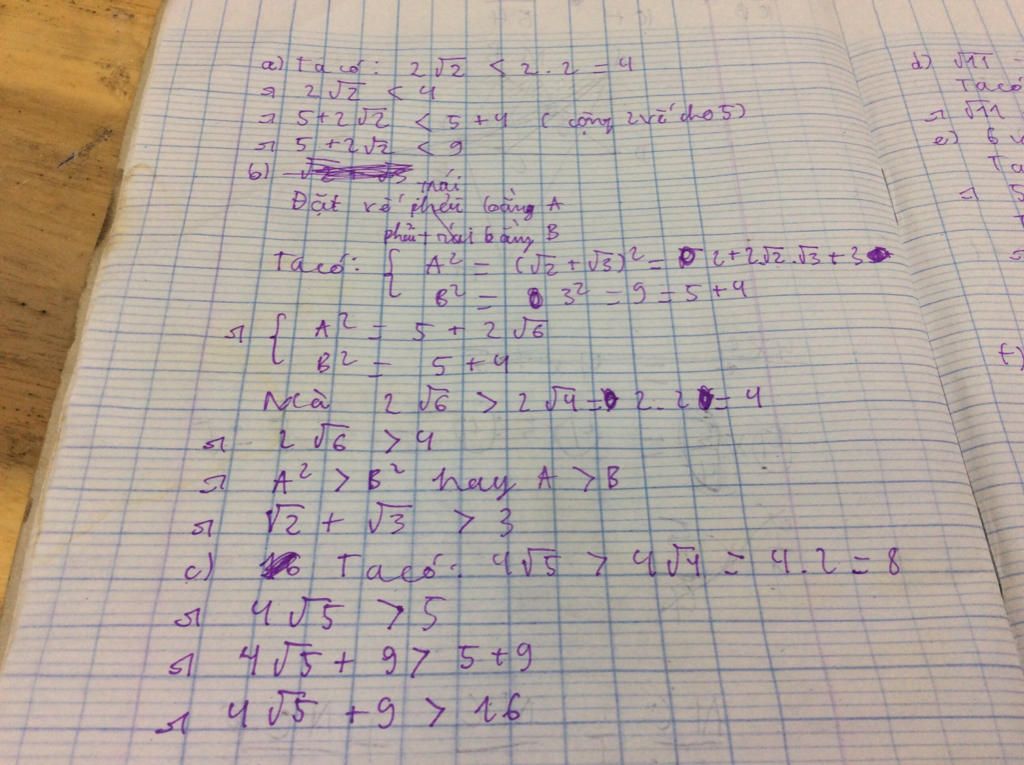 a) Ta có: 2√2 < 2.2 = 4
=> 2√2 < 4
=> 5+2√2 < 5+4 (cộng 2 vế cho 5)
=> 5+2√2 < 9
b)
trái
Đặt vế phải bằng A
phải bằng B
Ta có: { A² = (√2+√3)² = 2+2√2.√3+3
B² = 3² = 9 = 5+4
=> { A² = 5 + 2√6
B² = 5+4
Mà 2√6 > 2√4 = 2.2 = 4
=> 2√6 > 4
=> A² > B² hay A > B
=> √2 + √3 > 3
c) Ta có: 4√5 > 4√4 = 4.2 = 8
=> 4√5 > 5
=> 4√5 + 9 > 5+9
=> 4√5 + 9 > 16
d) √11
Ta có
=> √11
e) 6
Ta
=> 5
f)